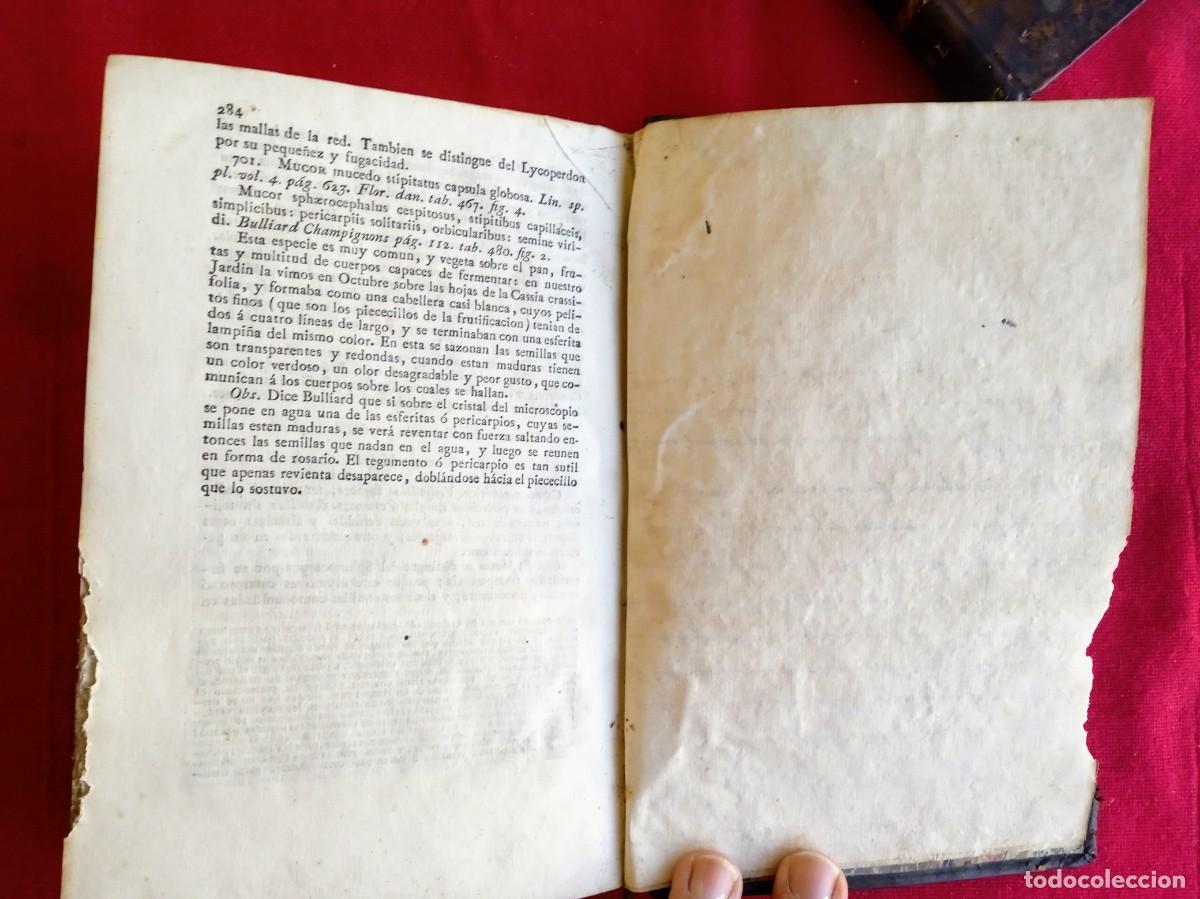 284
las mallas de la red. Tambien se distingue del Lycoperdon
por su pequeñez y fugacidad.
701. Mucor mucedo stipitatus capsula globosa. Lin. sp.
pl. vol. 4. pág. 623. Flor. dan. tab. 467. fig. 4.
Mucor sphærocephalus cespitosus, stipitibus capillaceis,
simplicibus: pericarpiis solitariis, orbicularibus: semine viri-
di. Bulliard Champignons pág. 112. tab. 480. fig. 2.
Esta especie es muy comun, y vegeta sobre el pan, fru-
tas y multitud de cuerpos capaces de fermentar: en nuestro
Jardin la vimos en Octubre sobre las hojas de la Cassia crassi-
folia, y formaba como una cabellera casi blanca, cuyos peli-
tos finos (que son los piececillos de la frutificacion) tenian de
dos á cuatro líneas de largo, y se terminaban con una esferita
lampiña del mismo color. En esta se sazonan las semillas que
son transparentes y redondas, cuando estan maduras tienen
un color verdoso, un olor desagradable y peor gusto, que co-
munican á los cuerpos sobre los cuales se hallan.
Obs. Dice Bulliard que si sobre el cristal del microscopio
se pone en agua una de las esferitas ó pericarpios, cuyas se-
millas esten maduras, se verá reventar con fuerza saltando en-
tonces las semillas que nadan en el agua, y luego se reunen
en forma de rosario. El tegumento ó pericarpio es tan sutil
que apenas revienta desaparece, doblándose hácia el piececillo
que lo sostuvo.
todocoleccion